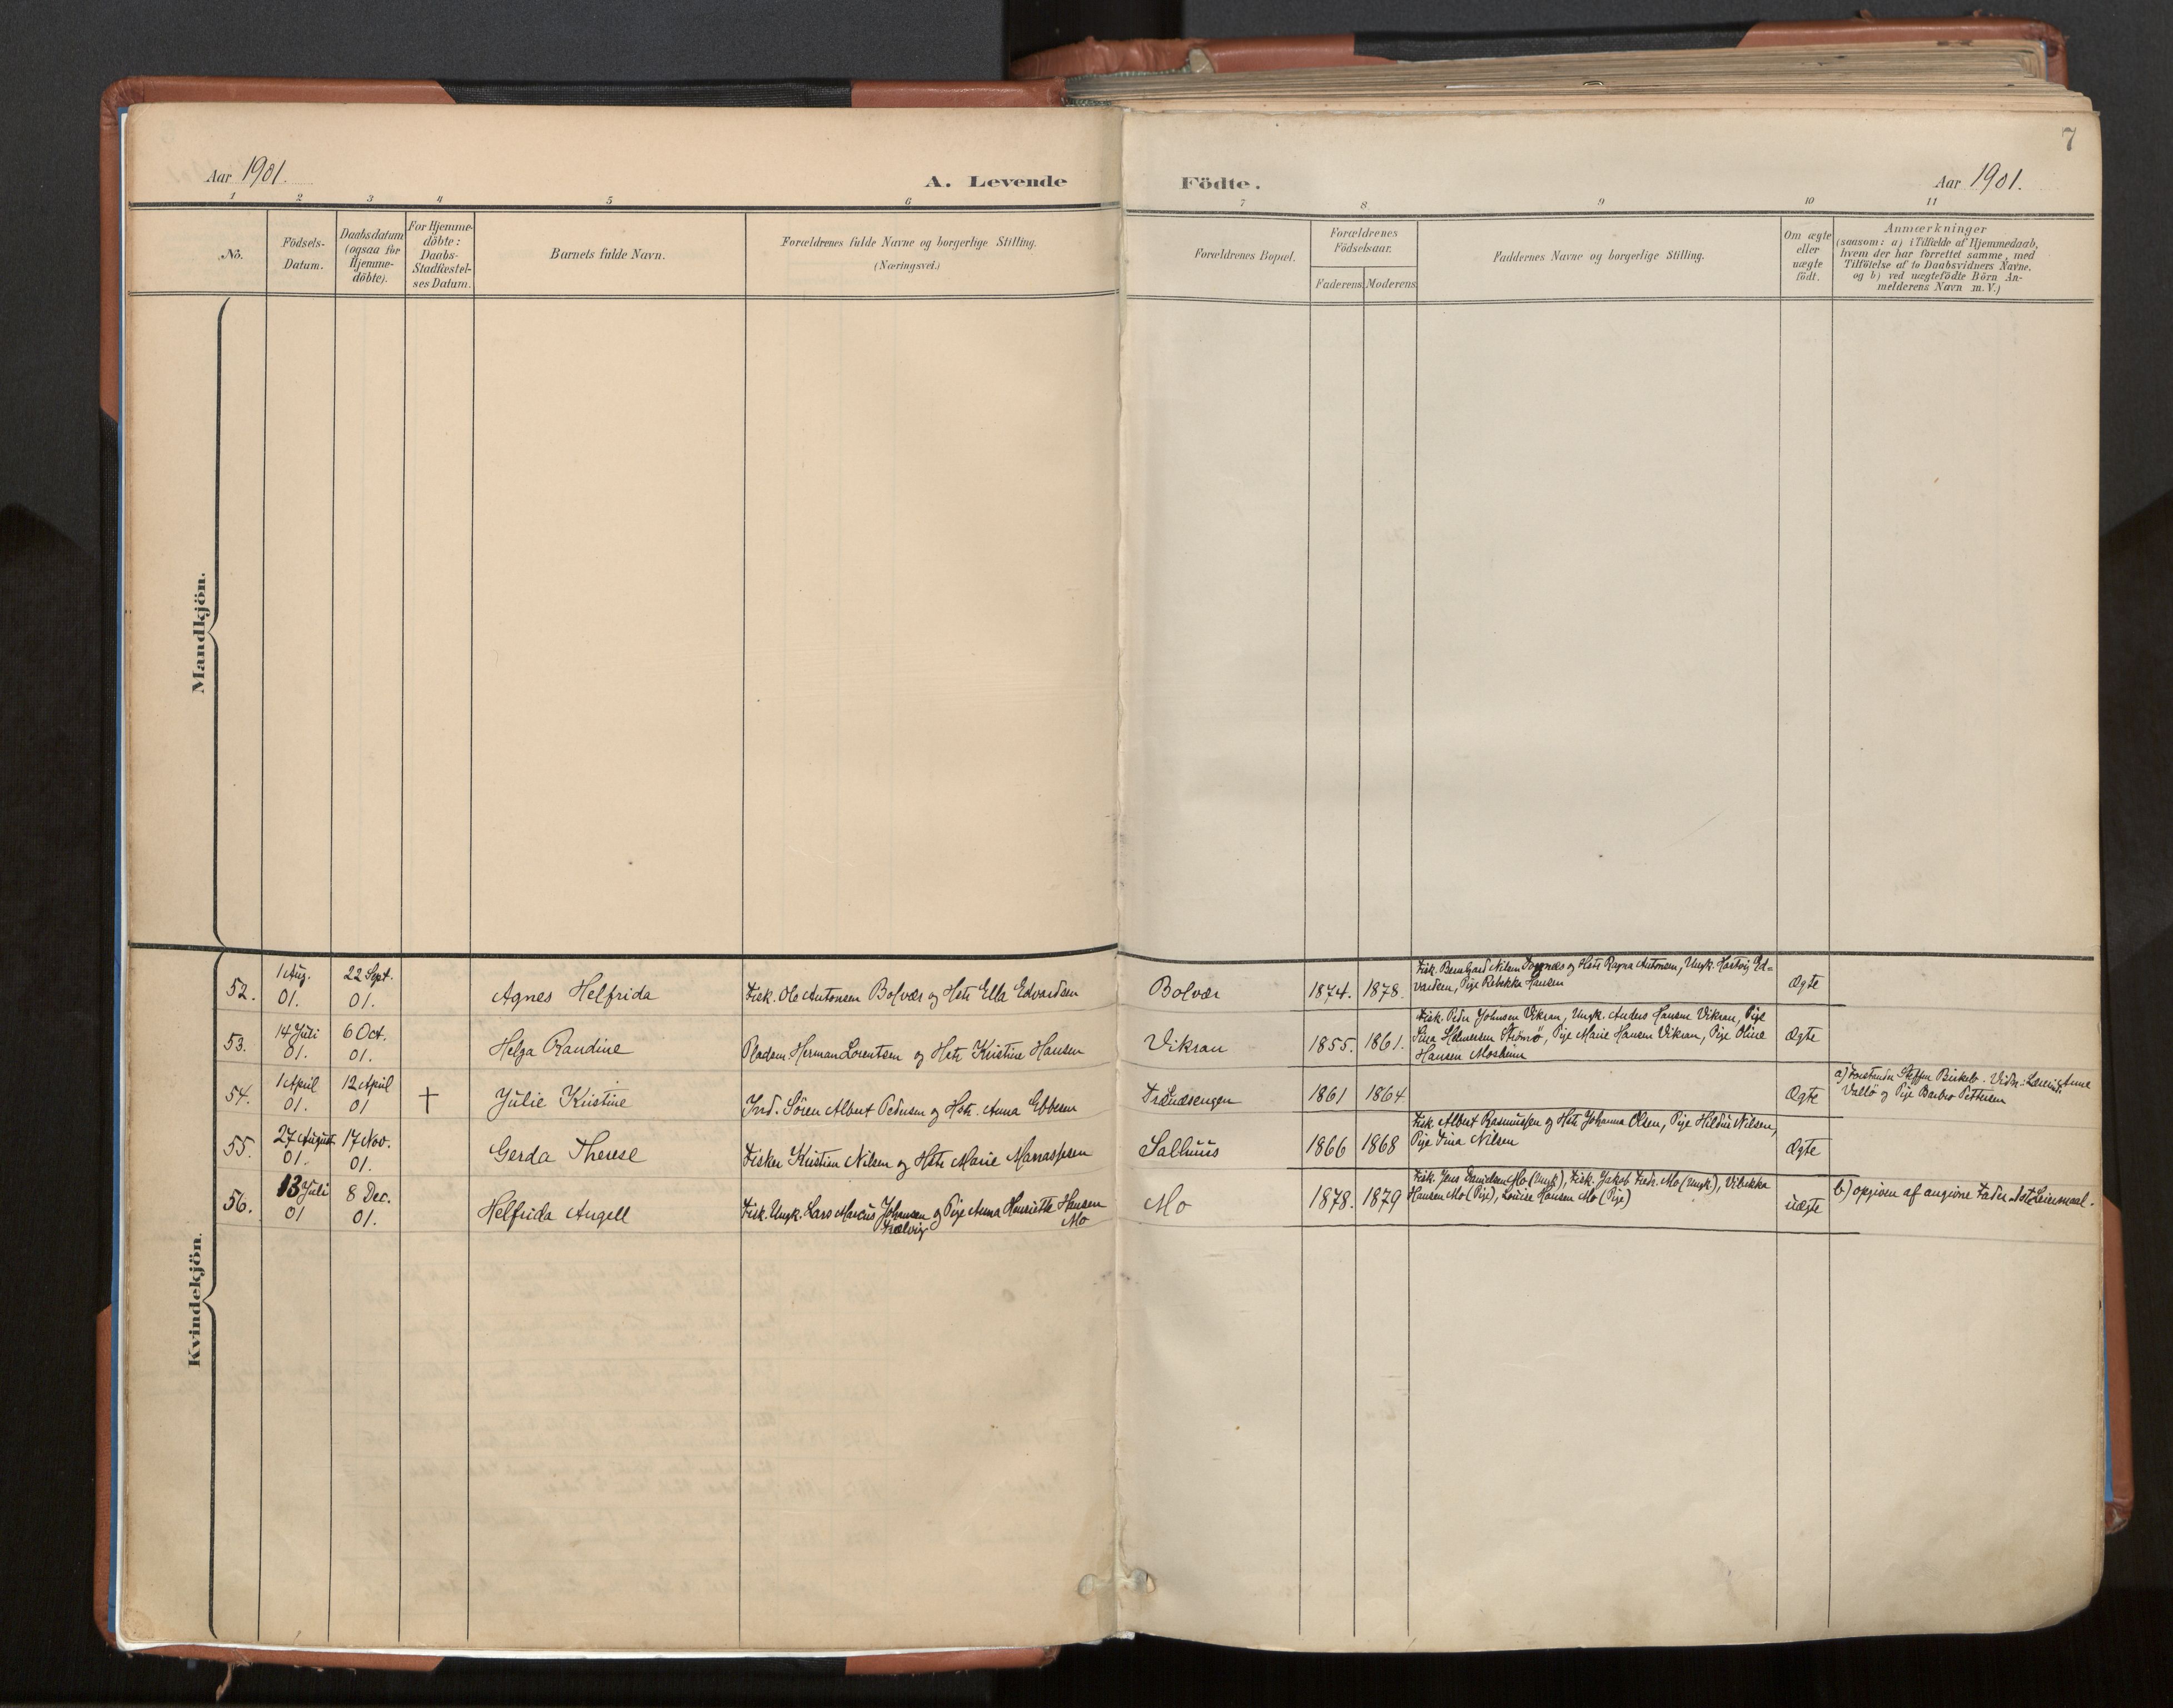 7
Aar 1901.
A. Levende Födte.
Aar 1901.
1 2 3 4 5 6 7 8. 9 10 11
No.
Födsels-
Datum.
Daabsdatum
(ogsaa for
Hjemme-
döbte).
For Hjemme-
döbte:
Daabs-
Stadfæstel-
ses Datum.
Barnets fulde Navn.
Forældrenes fulde Navne og borgerlige Stilling.
(Næringsvei.)
Forældrenes Bopæl.
Forældrenes
Födselsaar.
Faderens. Moderens.
Faddernes Navne og borgerlige Stilling.
Om ægte
eller
uægte
födt.
Anmærkninger
(saasom: a) i Tilfælde af Hjemmedaab,
hvem der har forrettet samme, med
Tilföielse af to Daabsvidners Navne.
og b) ved uægtefödte Börn An-
melderens Navn m. V.)
Mandkjön.
Kvindekjön.
52.
1 Aug.
01.
22 Sept.
01.
Agnes Helfrida
Fisk. Ole Antonsen Bolvær og Hstr Ella Edvardsen
Bolvær
1874. 1878.
Fisk. Bernhard Nilsen og Hstr Ragna Antonsen, Ungk. Hartvig Ed=
vardsen, Pige Rebekka Hansen
Ægte
53.
14 Juli
01.
6 Oct.
01.
Helga Randine
Pladsm. Herman Lorentsen og Hstr Kristine Hansen
Vikran
1855. 1861.
Fisk. Peder Johnsen Vikran, Ungk. Anders Hansen Vikran, Pige
Strömö, Pige Marie Hansen Vikran, Pige Oline
Hansen Mosheim
Ægte
54.
1 April
01.
12 April
01
†
Julie Kristine
Ind. Sören Albert Pedersen og Hstr. Anna Ebbesen
Trænæsengen
1861 1864
Ægte
a) Forstander Steffen Birkelo. Vidn: Anne
Vallö og Pige Barbro Pettersen
55.
27 August
01.
17 Nov.
01.
Gerda Therese
Fisker Kristian Nilsen og Hstr Marie Manassesen
Salhuus
1866 1868
Fisk. Albert Rasmussen og Hstr Johanna Olsen, Pige Hildur Nilsen,
Pige Tina Nilsen
Ægte
56.
13 Juli
01
8 Dec.
01.
Helfrida Angell
Fisk. Ungk. Lars Marcus Johansen og Pige Anna Henriette Hansen
Trælvig Mo
Mo
1878. 1879
Fisk. Jens Danielsen Mo (Ungk), Fisk. Jakob Fredr. Mo (Ungk), Vibekka
Hansen Mo (Pige), Louise Hansen Mo (Pige)
uægte
b) opgiven af angivne Fader. 1ste Leiermaal.